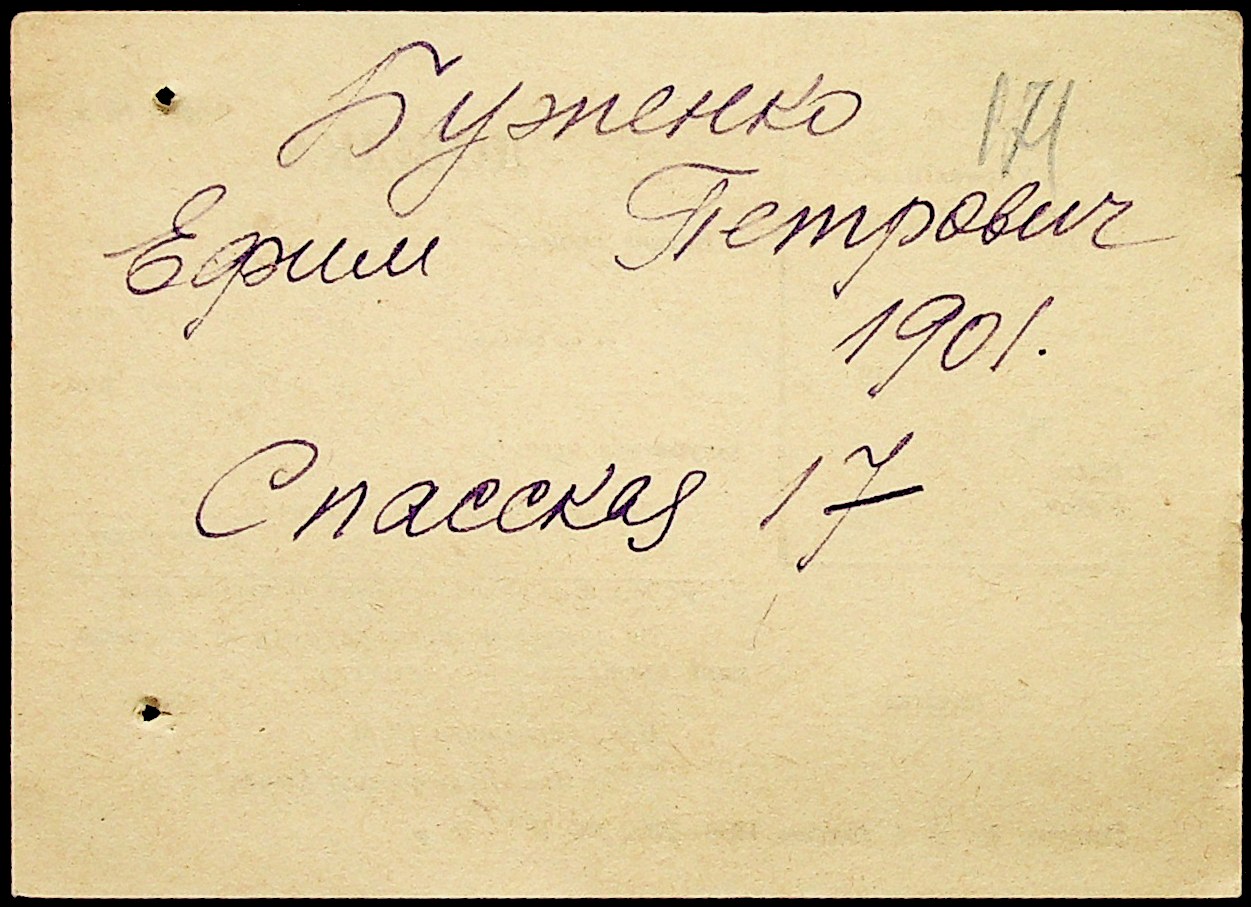 Буженко
Ефим Петрович
1901.
Спасская 17